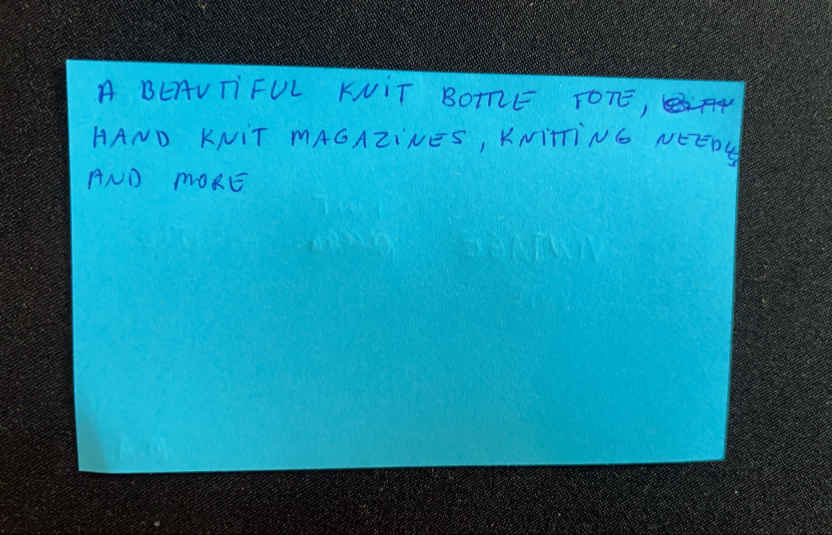 A BEAUTIFUL KNIT BOTTLE TOTE,
HAND KNIT MAGAZINES, KNITTING
AND MORE